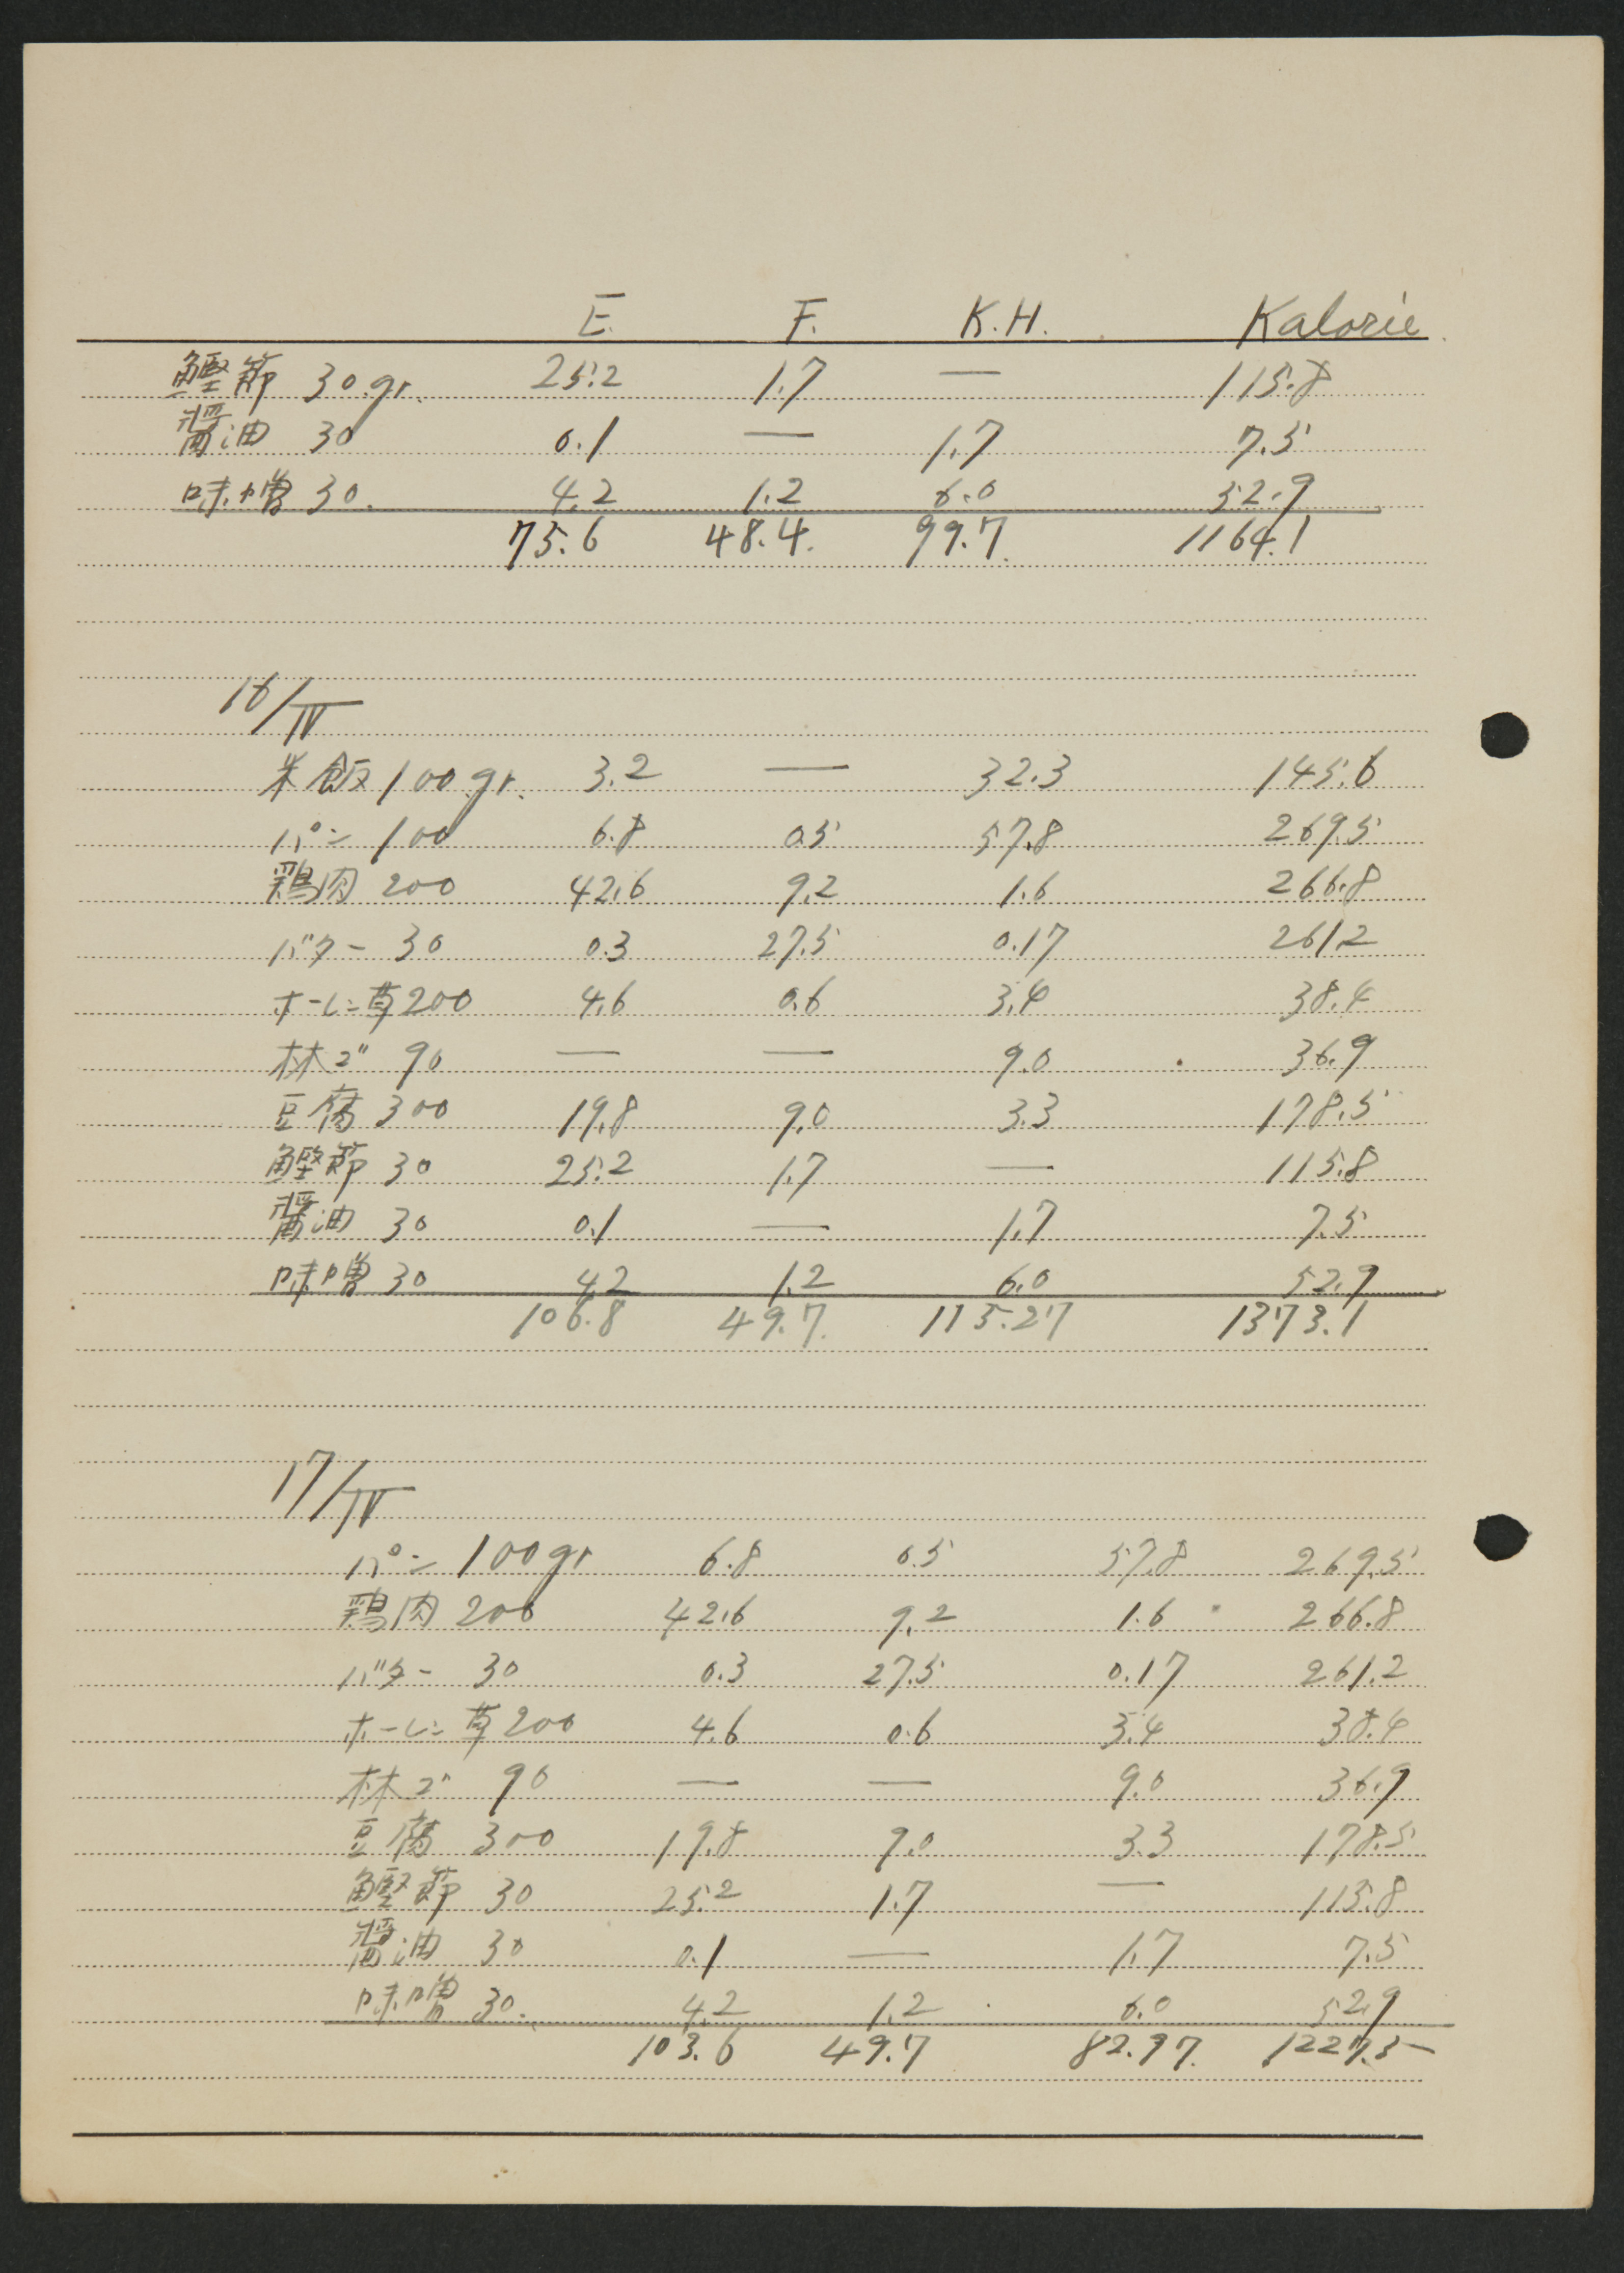 E. F. K.H. Kalorie
鰹節 30gr. 25.2 1.7 — 115.8
醤油 30 0.1 — 1.7 7.5
味噌 30. 4.2 1.2 6.0 52.9
75.6 48.4. 99.7. 1164.1
16/IV
米飯 100gr. 3.2 — 32.3 145.6
パン 100 6.8 0.5 57.8 269.5
鶏肉 200 42.6 9.2 1.6 266.8
バター 30 0.3 27.5 0.17 261.2
ホーレン草 200 4.6 0.6 3.4 38.4
林ゴ 90 — — 9.0 36.9
豆腐 300 19.8 9.0 3.3 178.5
鰹節 30 25.2 1.7 — 115.8
醤油 30 0.1 — 1.7 7.5
味噌 30 4.2 1.2 6.0 52.9
106.8 49.7. 115.27 1373.1
17/IV
パン 100gr 6.8 0.5 57.8 269.5
鶏肉 200 42.6 9.2 1.6 266.8
バター 30 0.3 27.5 0.17 261.2
ホーレン草 200 4.6 0.6 3.4 38.4
林ゴ 90 — — 9.0 36.9
豆腐 300 19.8 9.0 3.3 178.5
鰹節 30 25.2 1.7 — 115.8
醤油 30 0.1 — 1.7 7.5
味噌 30. 4.2 1.2 6.0 52.9
103.6 49.7 82.97. 1227.5